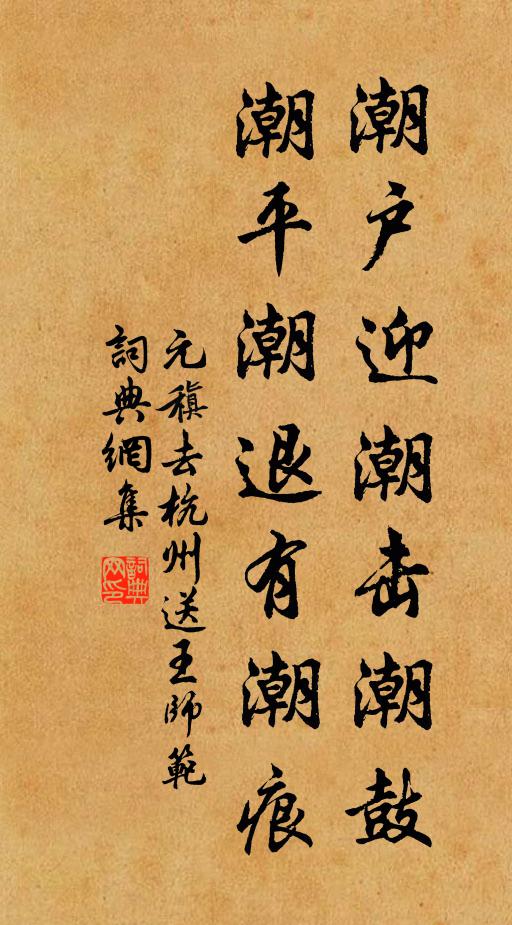 潮户迎潮击潮鼓
潮平潮退有潮痕
元稹去杭州送王師範
詞典網集
詞典
网印